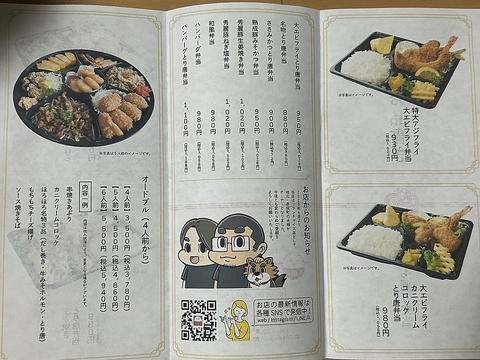 特大アジフライ
大エビフライ弁当
930円
※写真はイメージです。
大エビフライ
カニクリーム
コロッケ
とり唐弁当
980円
※写真はイメージです。
大エビフライとり唐弁当 950円
名物とり唐弁当 880円
ささみかつとり唐弁当 900円
熟成豚みそかつ弁当 950円
秀麗豚生姜焼き弁当 1,020円
秀麗豚ねぎ塩弁当 1,020円
和風弁当 980円
ハンバーグ弁当 980円
ハンバーグとり唐弁当 1,100円
お店からのお知らせ
お店の最新情報は
各種SNSで発信中!
web / Instagram / LINE
※写真は5人前のイメージです。
オードブル(4人前から)
【4人前】3,500円(税込3,780円)
【5人前】4,500円(税込4,860円)
【6人前】5,500円(税込5,940円)
内容 例
串焼きあぶり
カニクリームコロッケ
ほろほろ名物3品(だし巻き・牛みそホルモン・とり唐)
もちもちチーズ揚げ
ソース焼きそば